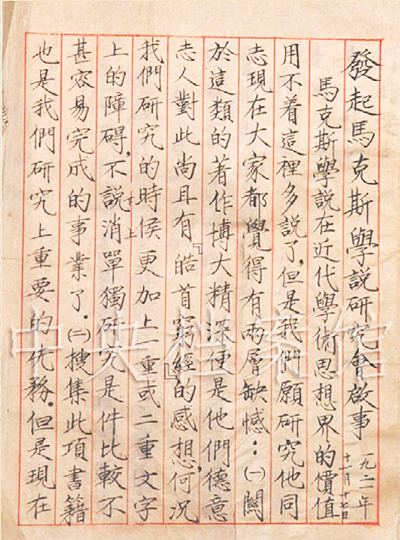 發起馬克斯學說研究會啟事
一九二一年
十一月十七日
馬克斯學說在近代學術思想界的價值
用不着這裡多說了,但是我們願研究他同
志現在大家都覺得有兩層缺憾:(一)關
於這類的著作博大精深便是他們德意
志人對此尚且有『皓首窮經』的感想,何況
我們研究的時侯更加上一重或二重文字
上的障碍,不說消單獨研究是件比較不
甚容易完成的事業了.(二)搜集此項書籍
也是我們研究上重要的先務.但是現在
中央档案馆